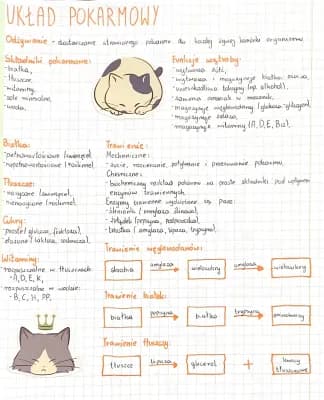 UKŁAD POKARMOWY
Odżywianie - dostarczanie strawionego pokarmu do każdej żywej komórki organizmu
Składniki pokarmowe:
- białka,
- tłuszcze,
- witaminy,
- sole mineralne,
- woda.
Funkcje wątroby:
- wytwarza żółć,
- wytwarza i magazynuje białka osocza,
- unieszkodliwia toksyny (np. alkohol),
- zamienia amoniak w mocznik,
- magazynuje węglowodany (glukoza → glikogen),
- magazynuje żelazo,
- magazynuje witaminy (A, D, E, B12).
Białka:
- pełnowartościowe (zwierzęce),
- niepełnowartościowe (roślinne).
Tłuszcze:
- nasycone (zwierzęce),
- nienasycone (roślinne).
Cukry:
- proste (glukoza, fruktoza),
- złożone (laktoza, sacharoza).
Witaminy:
- rozpuszczalne w tłuszczach:
- A, D, E, K,
- rozpuszczalne w wodzie:
- B, C, H, PP.
Trawienie:
Mechaniczne:
- żucie, rozcieranie, połykanie i przesuwanie pokarmu,
Chemiczne:
- biochemiczny rozkład pokarmu na proste składniki pod wpływem
enzymów trawiennych.
Enzymy trawienne wydzielane są przez:
- ślinianki (amylaza ślinowa),
- żołądek (pepsyna, podpuszczka),
- trzustka (amylaza, lipaza, trypsyna).
Trawienie węglowodanów:
skrobia amylaza wielocukry amylaza wielocukry
Trawienie białek:
białka pepsyna białka trypsyna aminokwasy
Trawienie tłuszczy:
tłuszcze lipaza glicerol + kwasy tłuszczowe